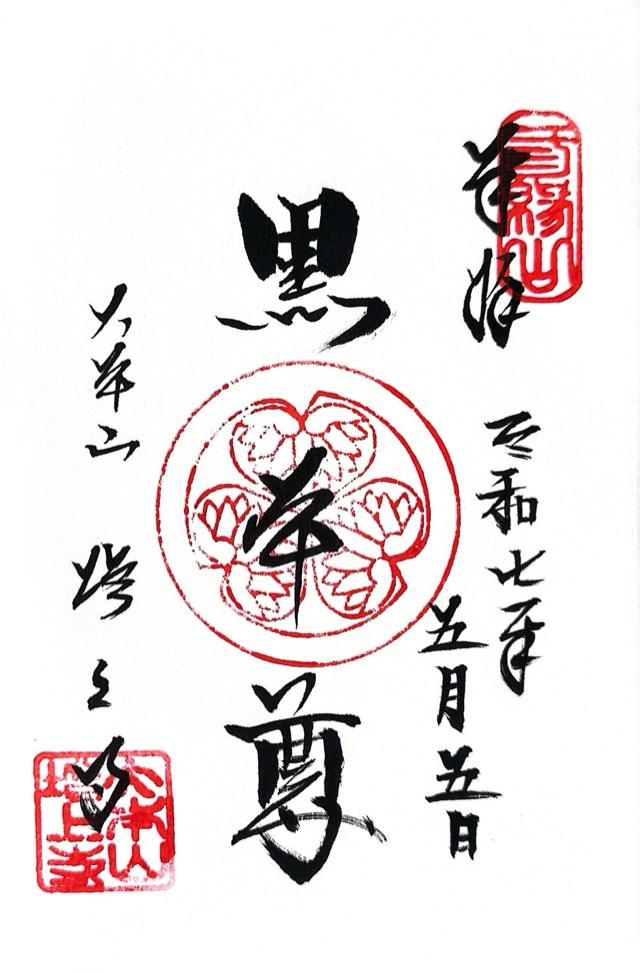 奉拝
令和七年
五月五日
黒本尊
大本山
増上寺
三縁山
大本山
増上寺